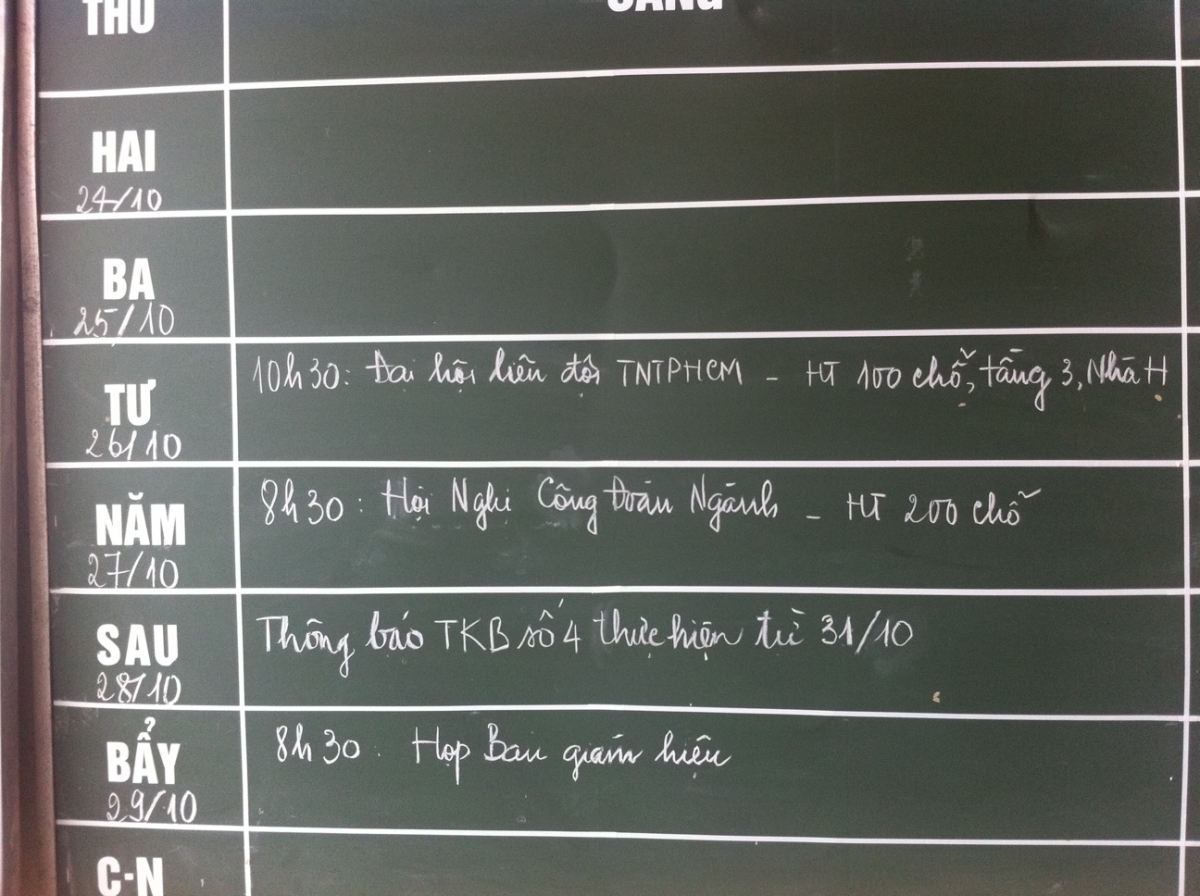 THỨ
SÁNG
HAI
24/10
BA
25/10
TƯ
26/10
10h30: Đại hội liên đội TNTPHCM - HT 100 chỗ, tầng 3, Nhà H
NĂM
27/10
8h30: Hội Nghị Công Đoàn Ngành - HT 200 chỗ
SAU
28/10
Thông báo TKB số 4 thực hiện từ 31/10
BẨY
29/10
8h30: Họp Ban giám hiệu
C-N